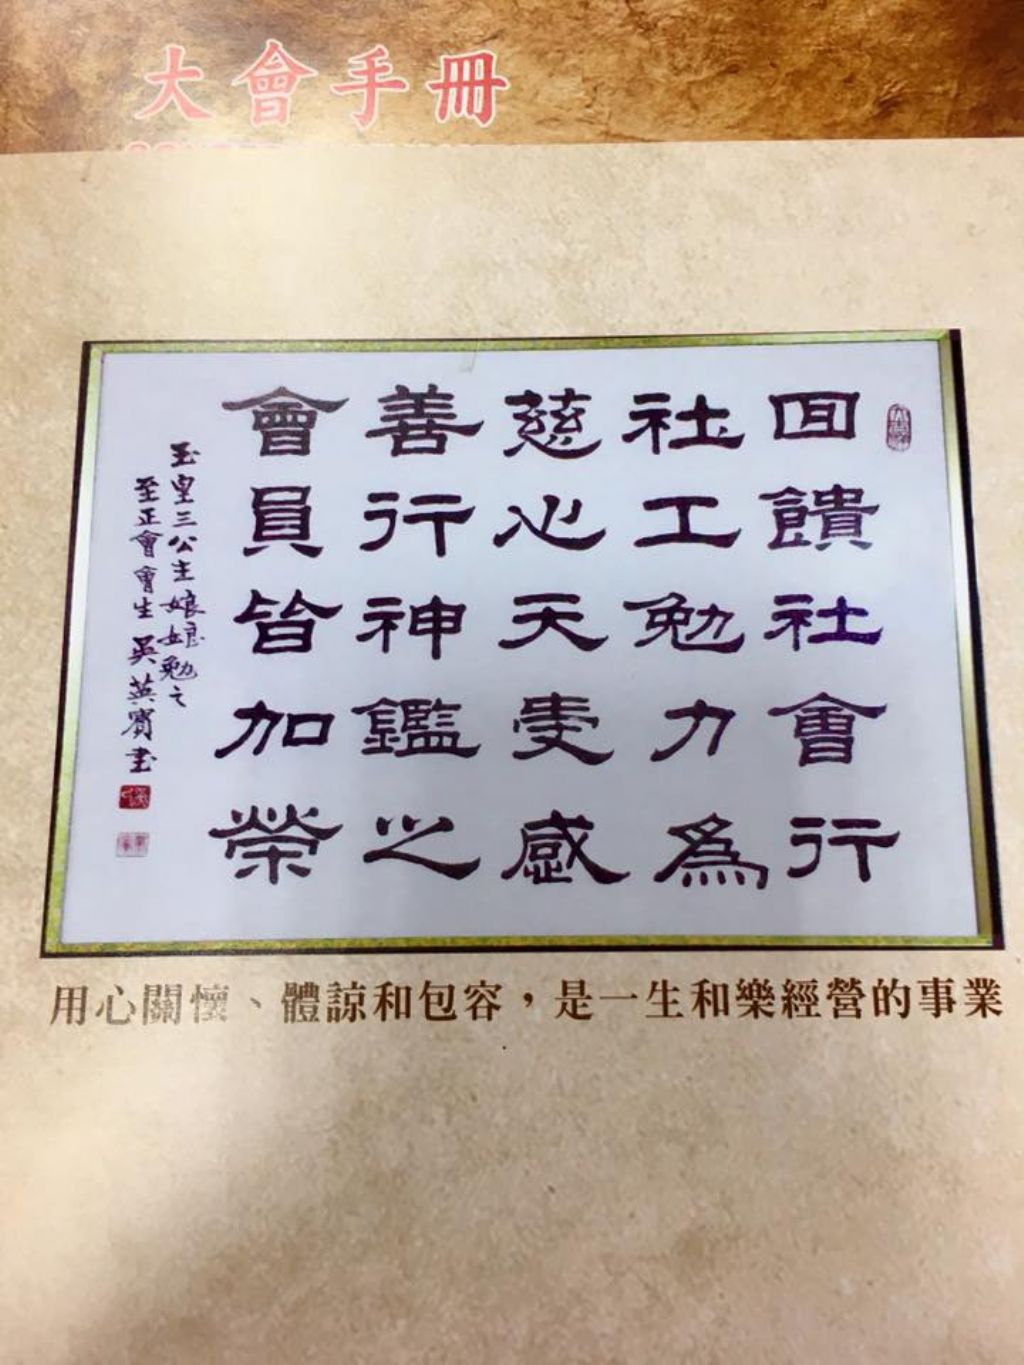 大會手冊
回饋社會行
社工勉力為
慈心天憂感
善行神鑑之
會員皆加榮
玉皇三公主娘娘勉之
至正會會生 吳英賓書
用心關懷、體諒和包容，是一生和樂經營的事業